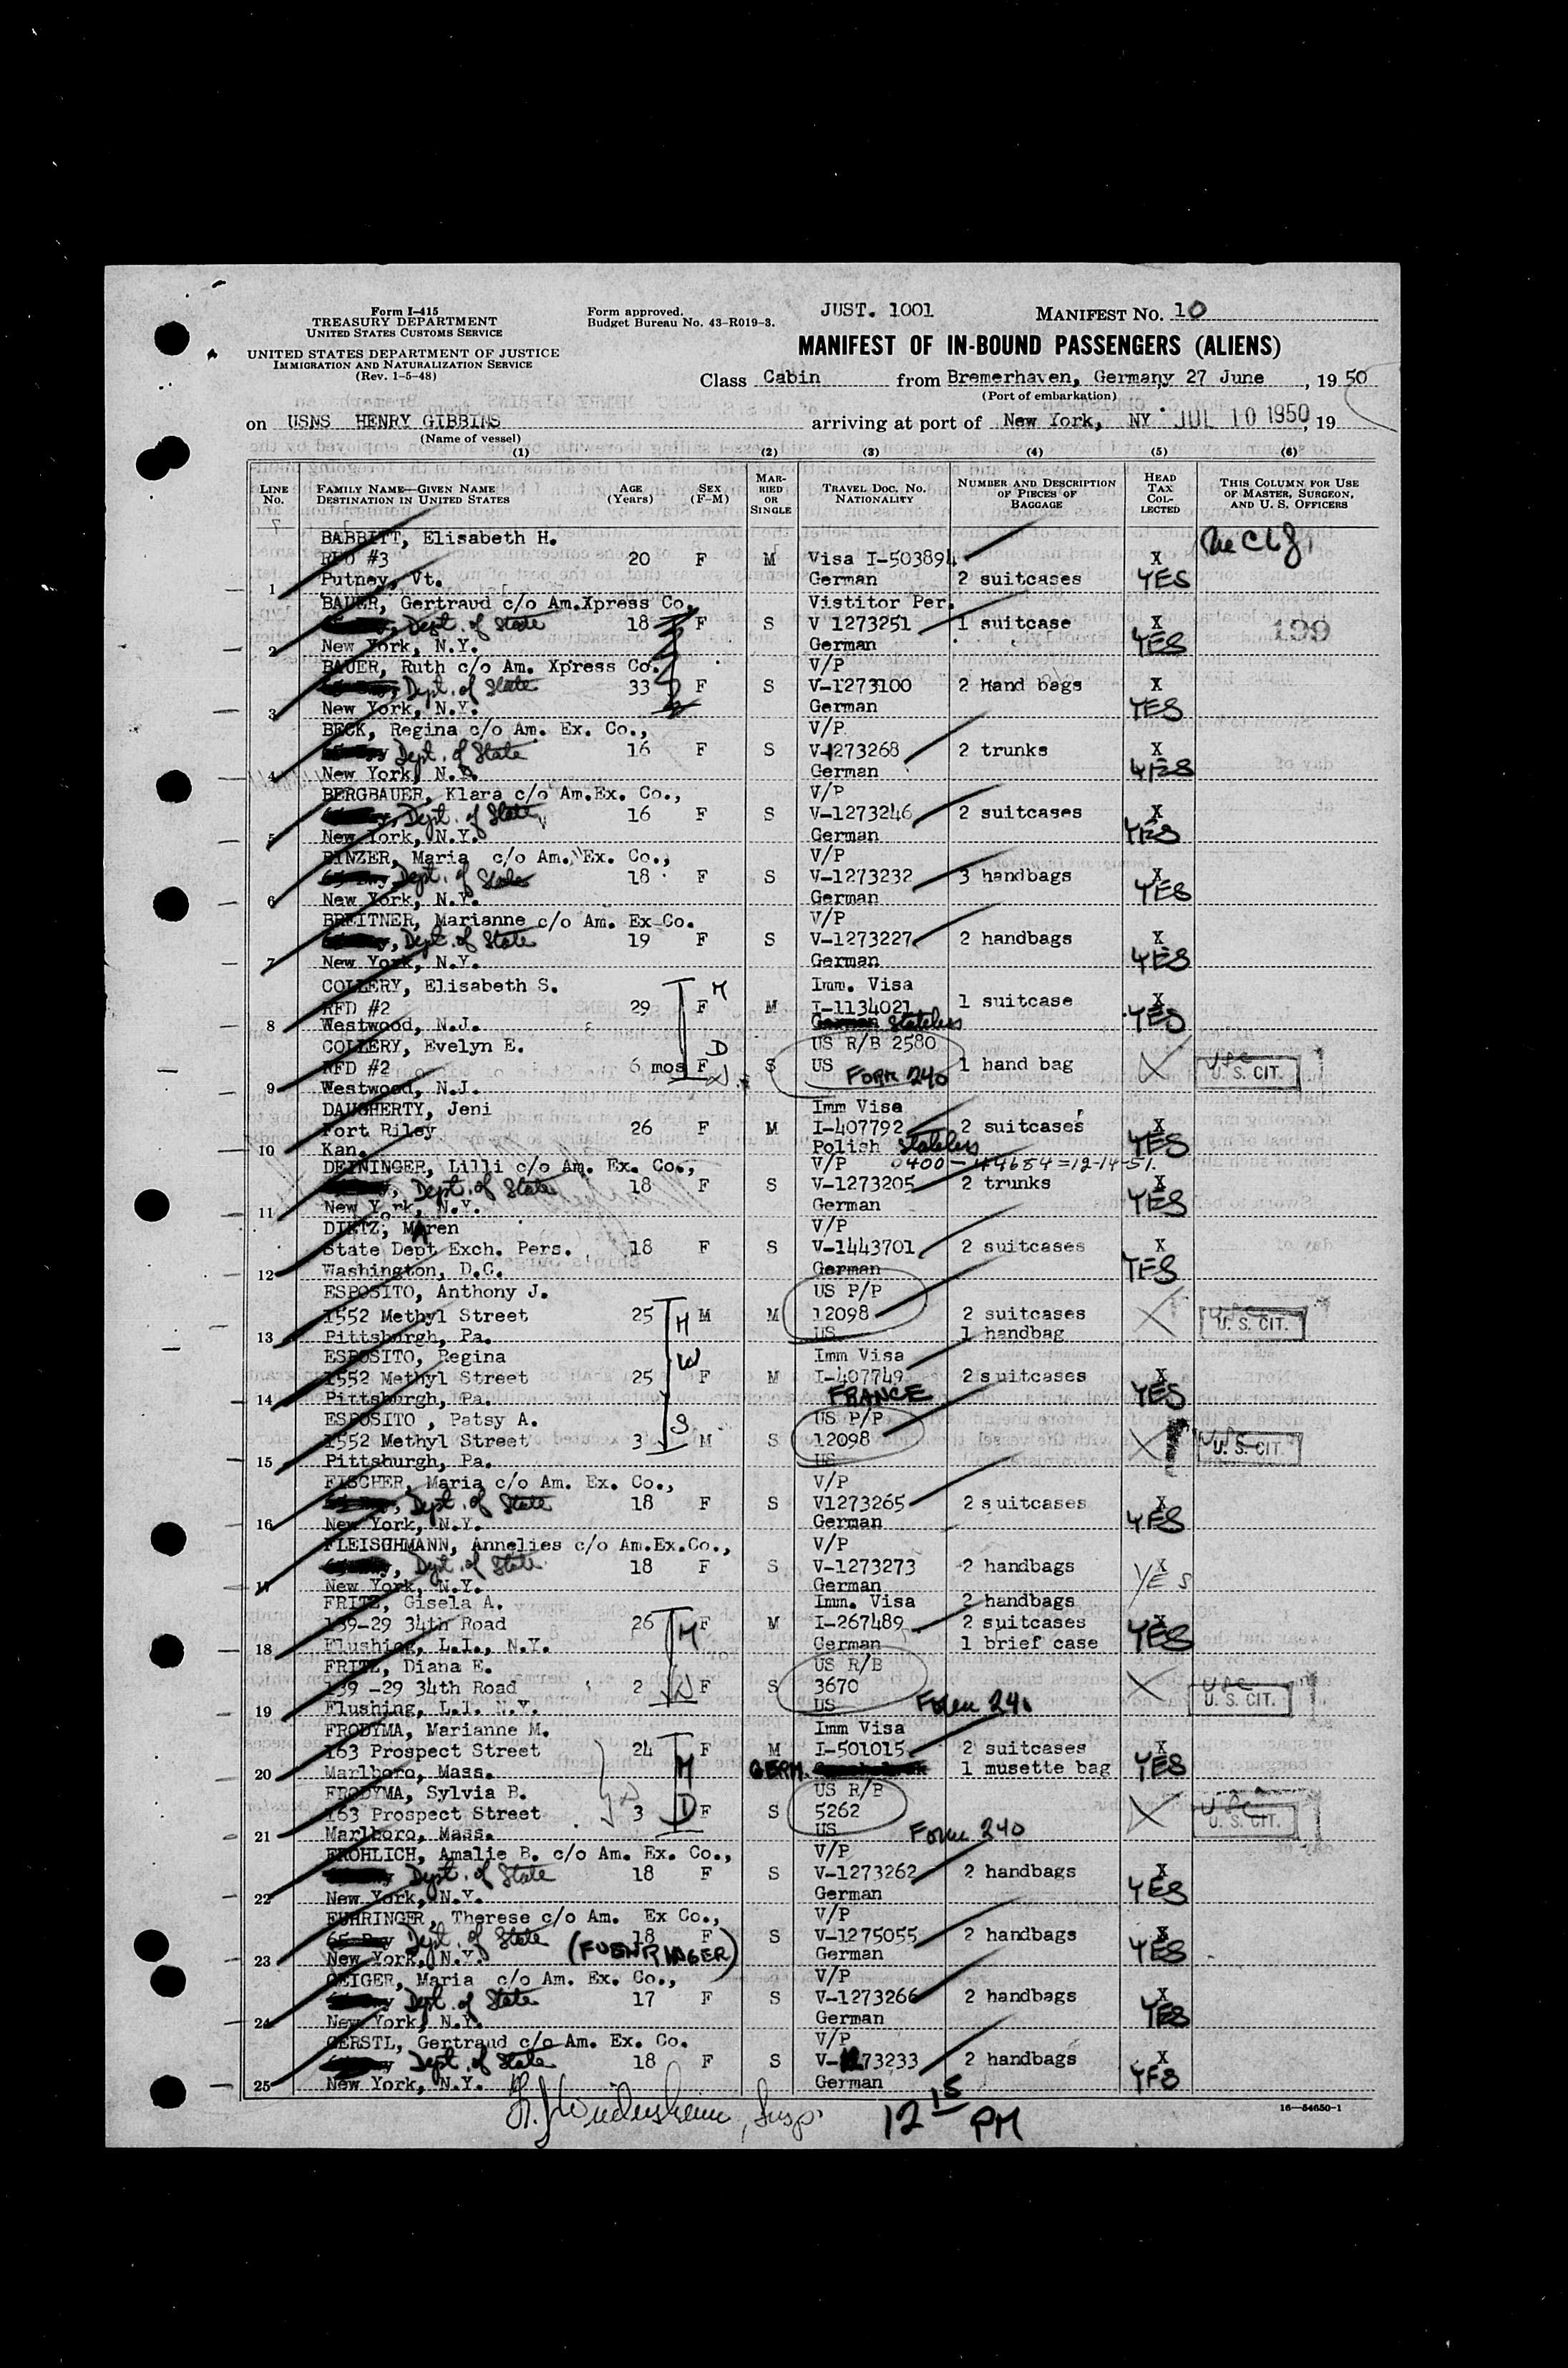 Form I-415
TREASURY DEPARTMENT
UNITED STATES CUSTOMS SERVICE
UNITED STATES DEPARTMENT OF JUSTICE
IMMIGRATION AND NATURALIZATION SERVICE
(Rev. 1-5-48)
Form approved.
Budget Bureau No. 43-R019-3.
JUST. 1001
MANIFEST No. 10
MANIFEST OF IN-BOUND PASSENGERS (ALIENS)
Class Cabin from Bremerhaven, Germany 27 June, 19 50
(Port of embarkation)
on USNS HENRY GIBBINS arriving at port of New York, NY JUL 10 1950, 19
(Name of vessel)
(1) (2) (3) (4) (5) (6)
LINE No. FAMILY NAME—GIVEN NAME DESTINATION IN UNITED STATES AGE (Years) SEX (F-M) MARRIED OR SINGLE TRAVEL DOC. No. NATIONALITY NUMBER AND DESCRIPTION OF PIECES OF BAGGAGE HEAD TAX COLLECTED THIS COLUMN FOR USE OF MASTER, SURGEON, AND U. S. OFFICERS
BABBITT, Elisabeth H.
RFD #3 20 F M Visa I-503894 X
1 Putney, Vt. German 2 suitcases YES
BAUER, Gertraud c/o Am.Xpress Co. Vistitor Per.
Dept. of State 18 F S V 1273251 1 suitcase X 199
2 New York, N.Y. German YES
BAUER, Ruth c/o Am. Xpress Co. V/P
Dept. of State 33 F S V-1273100 2 Hand bags X
3 New York, N.Y. German YES
BECK, Regina c/o Am. Ex. Co., V/P
Dept. of State 16 F S V-1273268 2 trunks X
4 New York, N.Y. German YES
BERGBAUER, Klara c/o Am.Ex. Co., V/P
Dept. of State 16 F S V-1273246 2 suitcases X
5 New York, N.Y. German YES
BINZER, Maria c/o Am. Ex. Co., V/P
Dept. of State 18 F S V-1273232 3 handbags X
6 New York, N.Y. German YES
BREITNER, Marianne c/o Am. Ex Co. V/P
Dept. of State 19 F S V-1273227 2 handbags X
7 New York, N.Y. German YES
COLLERY, Elisabeth S. Imm. Visa
RFD #2 29 F M M I-1134021 1 suitcase X
8 Westwood, N.J. German Stateless YES
COLLERY, Evelyn E. D US R/B 2580
RFD #2 6 mos F S US FORM 240 1 hand bag X U. S. CIT.
9 Westwood, N.J.
DAUGHERTY, Jeni Imm Visa
Fort Riley 26 F M I-407792 2 suitcases X
10 Kan. Polish Stateless YES
DEININGER, Lilli c/o Am. Ex. Co., V/P 0400-44684=12-14-51.
Dept. of State 18 F S V-1273205 2 trunks X
11 New York, N.Y. German YES
DIETZ, Maren V/P
State Dept Exch. Pers. 18 F S V-1443701 2 suitcases X
12 Washington, D.C. German YES
ESPOSITO, Anthony J. US P/P
1552 Methyl Street 25 H M M 12098 2 suitcases X U. S. CIT.
13 Pittsburgh, Pa. US 1 handbag
ESPOSITO, Regina Imm Visa
1552 Methyl Street 25 W F M I-407749 2 suitcases X
14 Pittsburgh, Pa. FRANCE YES
ESPOSITO , Patsy A. US P/P
1552 Methyl Street 3 S M S 12098 X U. S. CIT.
15 Pittsburgh, Pa. US
FISCHER, Maria c/o Am. Ex. Co., V/P
Dept. of State 18 F S V1273265 2 suitcases X
16 New York, N.Y. German YES
FLEISCHMANN, Annelies c/o Am.Ex.Co., V/P
Dept. of State 18 F S V-1273273 2 handbags X
17 New York, N.Y. German YES
FRITZ, Gisela A. Imm. Visa 2 handbags
139-29 34th Road 26 M F M I-267489 2 suitcases X
18 Flushing, L.I., N.Y. German 1 brief case YES
FRITZ, Diana E. US R/B
139 -29 34th Road 2 D F S 3670 X U. S. CIT.
19 Flushing, L.I. N.Y. US Form 240
FRODYMA, Marianne M. Imm Visa
163 Prospect Street 24 M F M I-501015 2 suitcases X
20 Marlboro, Mass. GERM. 1 musette bag YES
FRODYMA, Sylvia B. US R/B
163 Prospect Street 3 D F S 5262 X U. S. CIT.
21 Marlboro, Mass. US Form 240
FROHLICH, Amalie B. c/o Am. Ex. Co., V/P
Dept. of State 18 F S V-1273262 2 handbags X
22 New York, N.Y. German YES
FUHRINGER, Therese c/o Am. Ex Co., V/P
Dept. of State 18 F S V-1275055 2 handbags X
23 New York, N.Y. German YES
GEIGER, Maria c/o Am. Ex. Co., V/P
Dept. of State 17 F S V-1273266 2 handbags X
24 New York, N.Y. German YES
GERSTL, Gertraud c/o Am. Ex. Co. V/P
Dept. of State 18 F S V-1273233 2 handbags X
25 New York, N.Y. German YES
Insp.
12 15 PM
16—54650-1